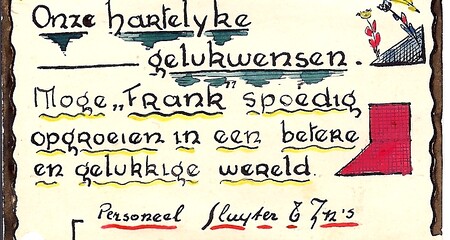 Onze hartelyke
gelukwensen.
Moge „Frank" spoedig
opgroeien in een betere
en gelukkige wereld.
Personeel Sluyter & Zn's